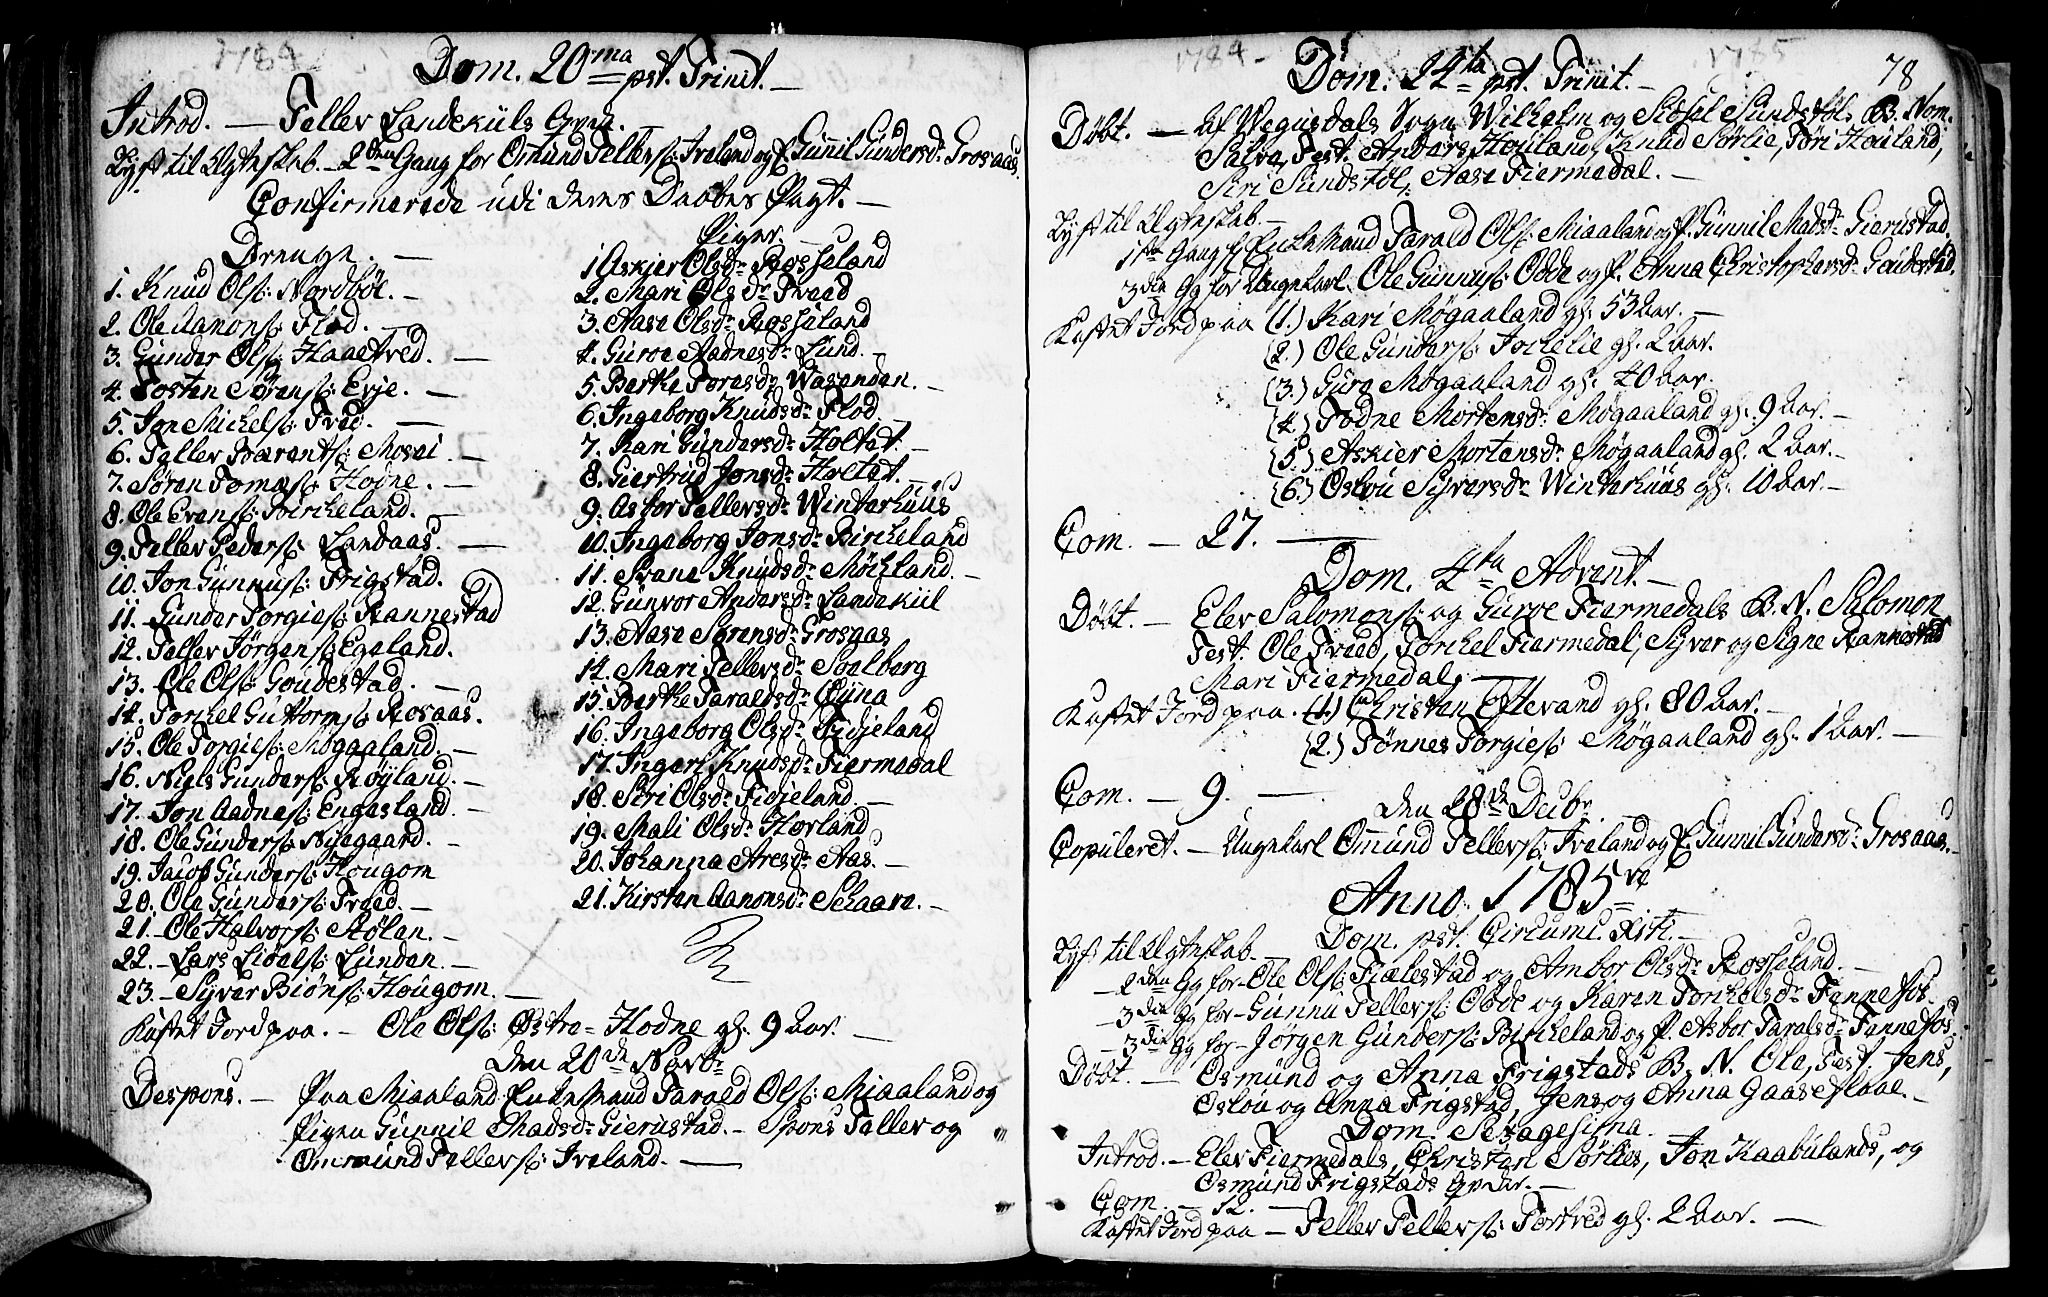 1784
Dom. 20ma pst. Trinit. —
Introd. — Teller Landekiils Qven. —
Lyst til Ægteskab. — 2den Gang for Omund Tellers: Iveland og P. Gunnil Gundersdr Grosaas.
Confirmerede udi deres Daabes Pagt. —
Drenge. —
1. Knud Ols: Nordbøe. —
2. Ole Aanons: Flod. —
3. Gunder Ols: Haaetved. —
4. Tosten Sørens: Evje. —
5. Jon Michels: Tved. —
6. Teller Berents: Mosei. —
7. Søren Tomes: Hodne. —
8. Ole Evens: Birkeland. —
9. Teller Peders: Landaas. —
10. Jon Gunnus: Frigstad.
11. Gunder Torgies: Rannestad
12. Teller Jørgens: Egeland.
13. Ole Ols: Goudestad. —
14. Torkel Guttorms: Rosaas.
15. Ole Torgies: Møgaaland. —
16. Niels Gunders: Røyland. —
17. Jon Aadnes: Engesland. —
18. Ole Gunders: Nisegaard. —
19. Jacob Gunders: Hougom
20. Ole Gunders: Tveed. —
21. — Ole Halvors: Stølen. —
22. — Lars Lidels: Lunden. —
23. — Syver Biøns: Hougom. —
Piger. —
1. Askier Olsdr Rosseland
2. Mari Olsdr Tveed
3. Aase Olsdr Rosseland
4. Guroe Aadnesdr Lund. —
5. Berthe Toresdr Wasenden. —
6. Ingeborg Knudsdr Flod. —
7. Kari Gundersdr Holtet. —
8. Giertrud Jonsdr Holtet. —
9. Asbor Tellersdr Winterhuus
10. Ingeborg Jonsdr Birkeland
11. Svane Knudsdr Mochland. —
12. Gunvor Andersdr Landekiil
13. Aase Sørensdr Grosaas
14. Mari Tellersdr Soelberg
15. Berthe Taraldsdr Øyna
16. Ingeborg Olsdr Fidjeland
17. Ingerl Knudsdr Fiermedal
18. Siri Olsdr Fidjeland. —
19. Mali Olsdr Horland
20. Johanna Aresdr Aas. —
21. Kirsten Aanonsdr Schaare. —
Kastet Jord paa. — Ole Ols: Østre-Hodne gl. 9 Aar. —
Den 20de Novbr
Despons. — Paa Miaaland Enkemand Tarald Ols: Miaaland og
Pigen Gunnil Madsdr Gierustad. — Spons Teller og
Ommund Tellers: Iveland. —
1784 — 1785
78
Dom. 24ta pst. Trinit. —
Døbt. — Af Wegusdals Sogn Wilhelm og Sidsel Sundstøl, B. Nom.
Salve, Test. Anders Houiland, Knud Sørlie, Tøri Houland,
Siri Sundstøl, Aase Fiermedal. —
Lyst til Ægteskab. —
1ste Gang f. Enkemand Tarald Ols: Miaaland og P. Gunnil Madsdr Gierustad.
3die Gg for Ungekarl Ole Gunnus: Odde og P. Anna Christophersdr Goudestad.
Kastet Jord paa (1.) Kari Møgaaland gl. 53 Aar. —
(2.) Ole Gunders: Jorkelie gl. 2 Aar.
(3.) Guro Møgaaland gl. 40 Aar.
(4.) Todne Mortensdr Møgaaland gl. 9 Aar. —
(5.) Askier Mortensdr Møgaaland gl. 2 Aar. —
(6.) Oslou Syversdr Winterhuus gl. 10 Aar. —
Com. — 27. —
Dom. 4ta Advent. —
Døbt. — Elev Salomons: og Gurve Fiermedals B. N. Salomon
Test. Ole Tveed, Torkel Fiermedal, Syver og Signe Rannestad
Mari Fiermedal. —
Kastet Jord paa. (1.) Christen Eftevand gl. 80 Aar. —
(2.) Tønnes Torgies: Møgaaland gl. 1 Aar. —
Com. — 9. —
Den 28de Decbr
Copuleret. — Ungekarl Omund Tellers: Iveland og P. Gunnil Gundersdr Grosaas. —
Anno. 1785ve
Dom. pst. Circumc. Xsti. —
Lyst til Ægteskab. —
— 2den Gg for — Ole Ols: Fialestad og Ambor Olsdr Rosseland. —
— 3die Gg for — Gunnu Tellers: Odde og Karen Torkelsdr Tannefos. —
— 3die Gg for — Jørgen Gunders: Birkeland og P. Asbor Taralsdr Tannefos.
Døbt. — Osmund og Anna Frigstads B. N. Ole, Test. Jens,
Oslou og Anna Frigstad, Jens og Anna Gaaseflaae. —
Dom. Sexagesima.
Introd. — Elev Fiermedals, Christen Sørlies, Jon Kaabulands, og
Osmund Frigstads Qvder. —
Com. — 12. —
Kastet Jord paa — Teller Tellers: Tortved gl. 2 Aar. —